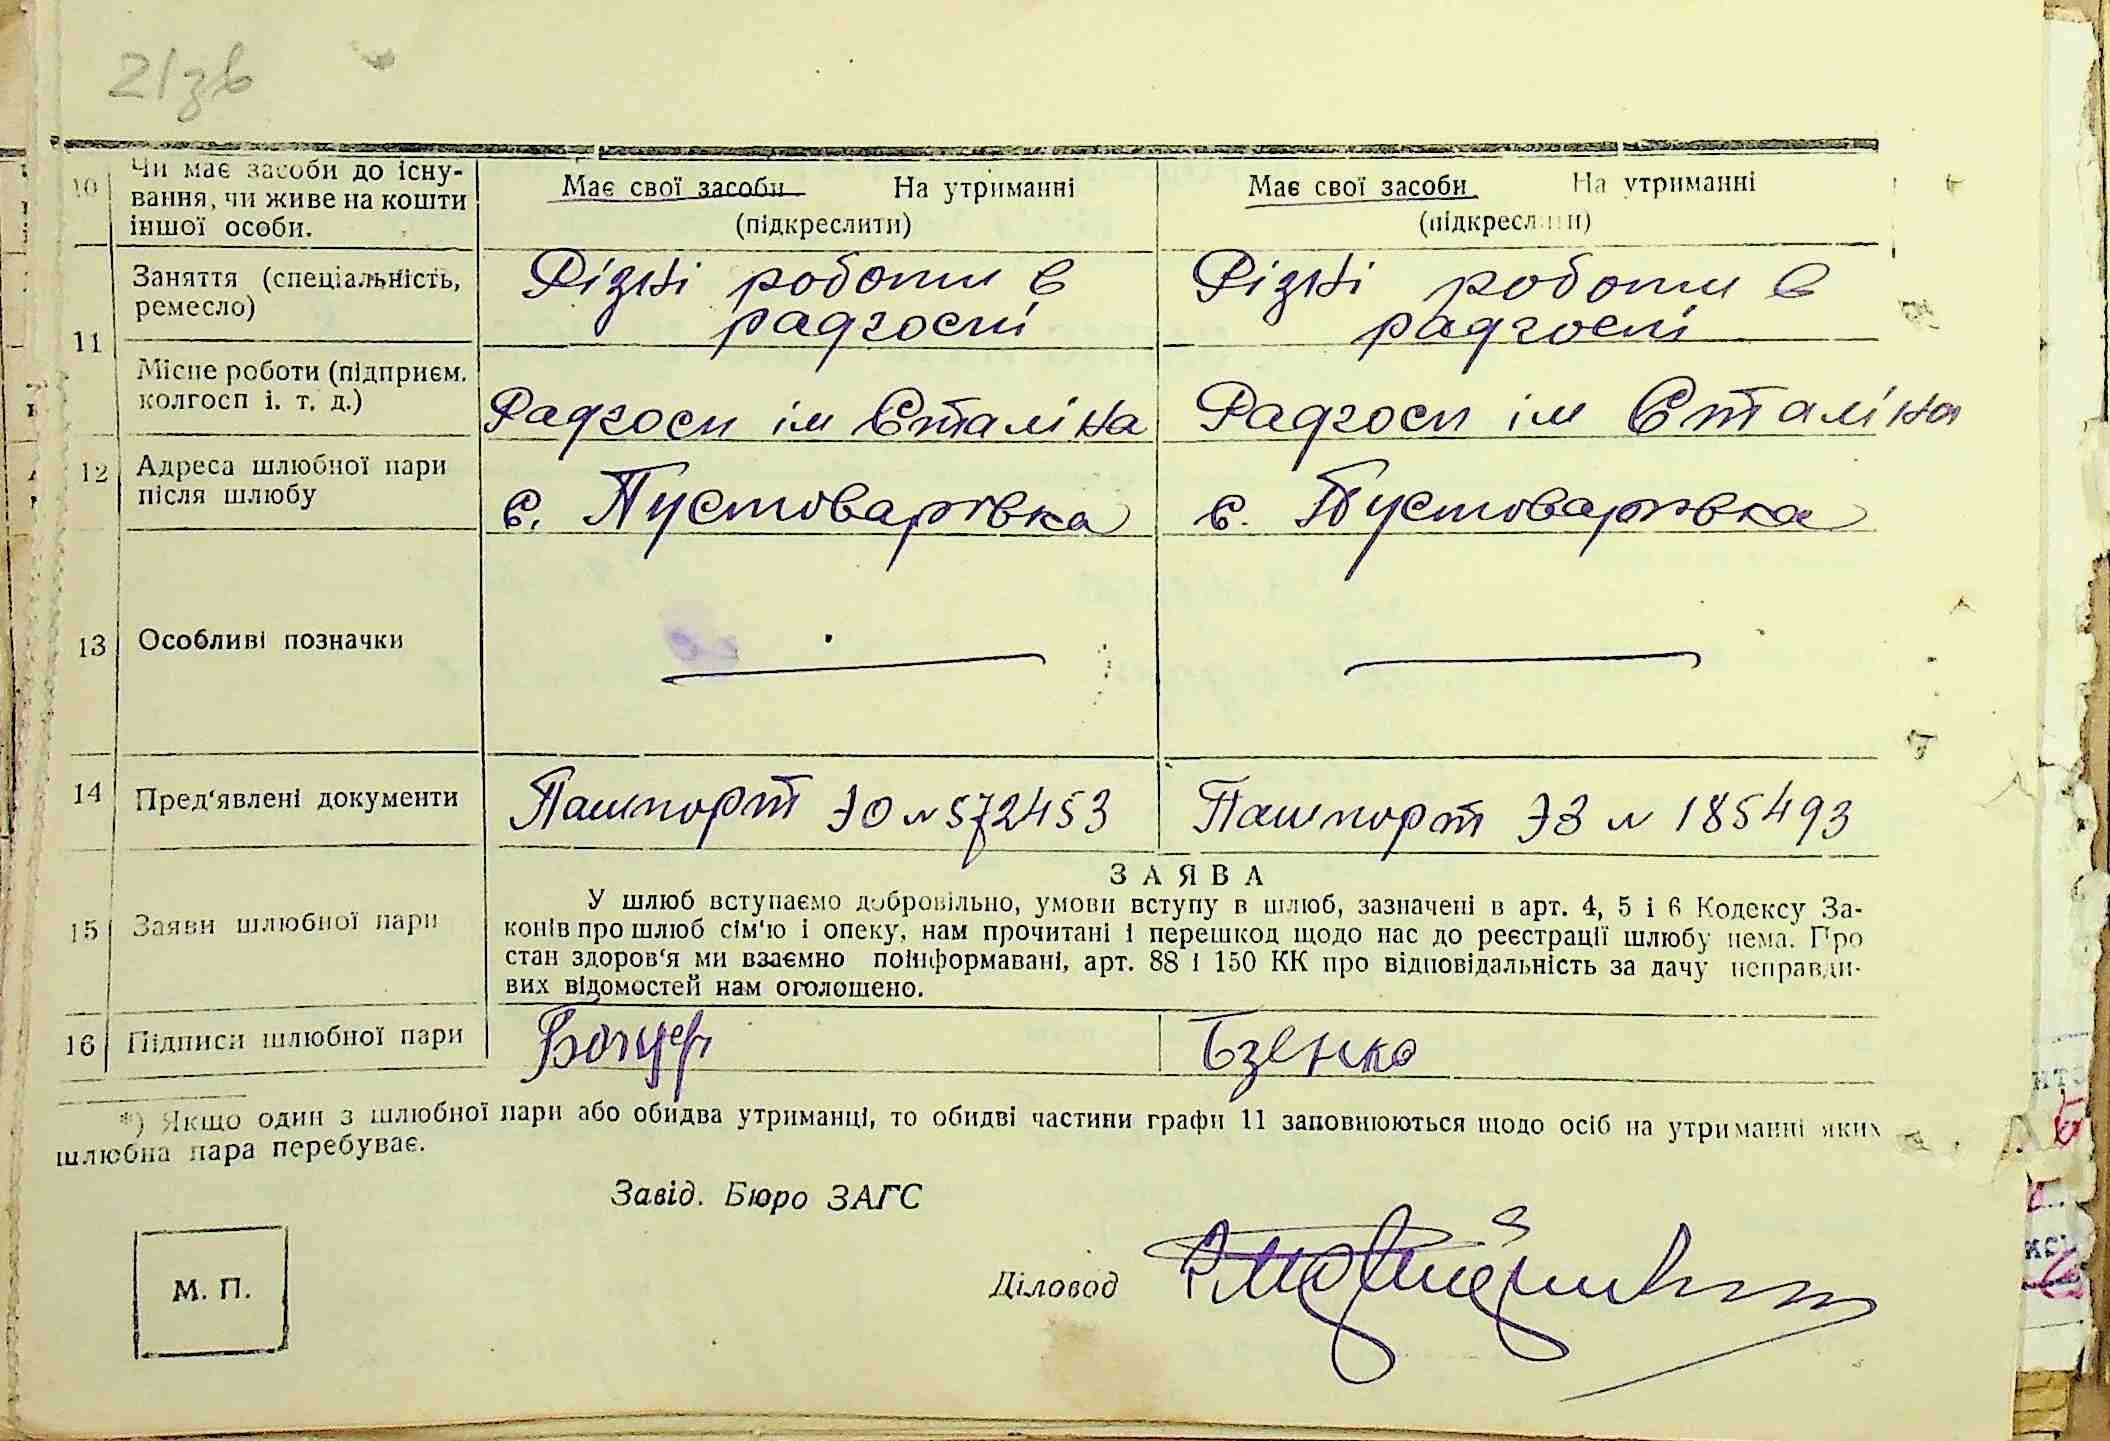 21зв
10 Чи має засоби до існу-
вання, чи живе на кошти
іншої особи.
Має свої засоби На утриманні
(підкреслити)
Має свої засоби На утриманні
(підкреслити)
11 Заняття (спеціальність,
ремесло)
Різні роботи в
радгоспі
Різні роботи в
радгоспі
Місце роботи (підприєм.
колгосп і. т. д.)
Радгосп ім Сталіна
Радгосп ім Сталіна
12 Адреса шлюбної пари
після шлюбу
с. Пустоварівка
с. Пустоварівка
13 Особливі позначки
14 Пред'явлені документи
Пашпорт ЭО № 572453
Пашпорт ЭЗ № 185493
15 Заяви шлюбної пари
ЗАЯВА
У шлюб вступаємо добровільно, умови вступу в шлюб, зазначені в арт. 4, 5 і 6 Кодексу За-
конів про шлюб сім'ю і опеку, нам прочитані і перешкод щодо нас до реєстрації шлюбу нема. Про
стан здоров'я ми взаємно поінформавані, арт. 88 і 150 КК про відповідальність за дачу неправди-
вих відомостей нам оголошено.
16 Підписи шлюбної пари
Бзенко
*) Якщо один з шлюбної пари або обидва утриманці, то обидві частини графи 11 заповнюються щодо осіб на утриманні яких
шлюбна пара перебуває.
Завід. Бюро ЗАГС
Діловод
М. П.